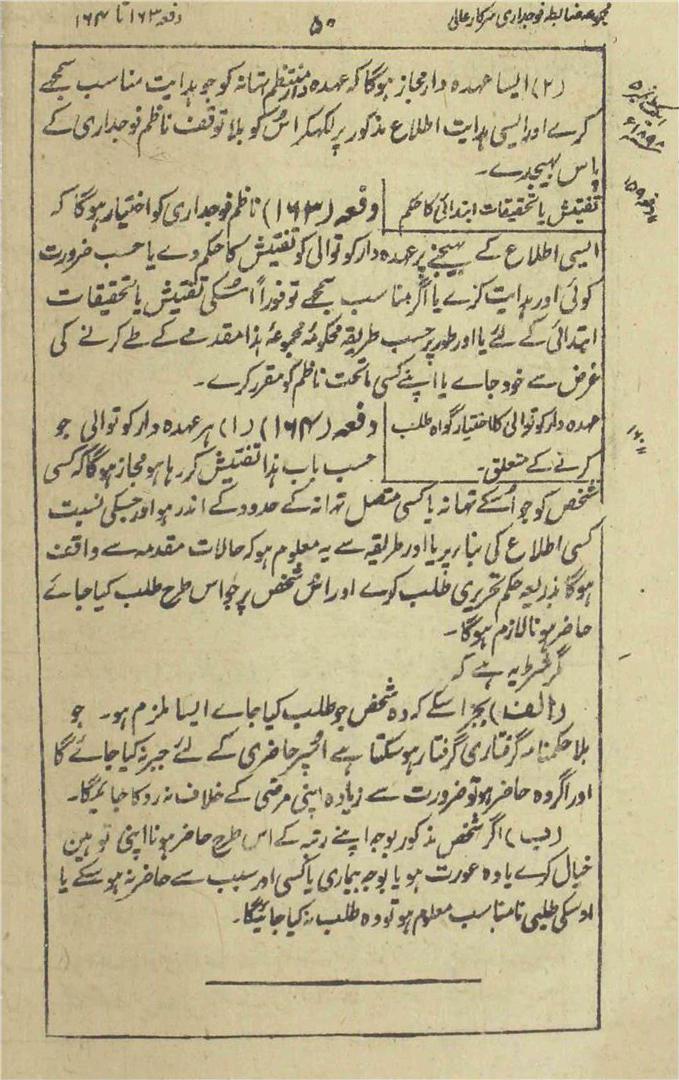 مجموعہ ضابطہ فوجداری سرکار عالی
۵۰
دفعہ ۱۶۳ تا ۱۶۴
(۲) ایسا عہدہ دار مجاز ہوگا کہ عہدہ دار منتظم تہانہ کو جو ہدایت مناسب سمجھے
کرے اور ایسی ہدایت اطلاع مذکور پر لکھکر اُس کو بلا توقف ناظم فوجداری کے
پاس بہیجدے۔
تفتیش یا تحقیقات ابتدائی کا حکم
دفعہ (۱۶۳) ناظم فوجداری کو اختیار ہوگا کہ
ایسی اطلاع کے پہنچنے پر عہدہ دار کوتوالی کو تفتیش کا حکم دے یا حسب ضرورت
کوئی اور ہدایت کرے یا اگر مناسب سمجھے تو فوراً اُسکی تفتیش یا تحقیقات
ابتدائی کے لئے یا اور طور پر حسب طریقہ محکومۂ مجموعۂ ہذا مقدمے کے طے کرنے کی
غرض سے خود جاے یا اپنے کسی ماتحت ناظم کو مقرر کرے۔
عہدہ دار کوتوالی کا اختیار گواہ طلب
کرنے کے متعلق۔
دفعہ (۱۶۴) (۱) ہر عہدہ دار کوتوالی جو
حسب باب ہذا تفتیش کر رہا ہو مجاز ہوگا کہ کسی
شخص کو جو اُسکے تہانہ یا کسی متصل تہانہ کے حدود کے اندر ہو اور جسکی نسبت
کسی اطلاع کی بناء پر یا اور طریقہ سے یہ معلوم ہو کہ حالات مقدمہ سے واقف
ہوگا بذریعہ حکم تحریری طلب کرے اور اُس شخص پر جو اس طرح طلب کیا جاے
حاضر ہونا لازم ہوگا۔
گر شرط یہ ہے کہ
(الف) بجز اسکے کہ وہ شخص جو طلب کیا جاے ایسا ملزم ہو۔ جو
بلا حکمنامہ گرفتاری گرفتار ہو سکتا ہے اُسپر حاضری کے لئے جبر نہ کیا جائے گا
اور اگر وہ حاضر ہو تو ضرورت سے زیادہ اپنی مرضی کے خلاف نہ روکا جائیگا۔
(ب) اگر شخص مذکور بوجہ اپنے رتبہ کے اس طرح حاضر ہونا اپنی توہین
خیال کرے یا وہ عورت ہو یا بوجہ بیماری یا کسی اور سبب سے حاضر نہ ہو سکے یا
اوسکی طلبی نامناسب معلوم ہو تو وہ طلب نہ کیا جائیگا۔